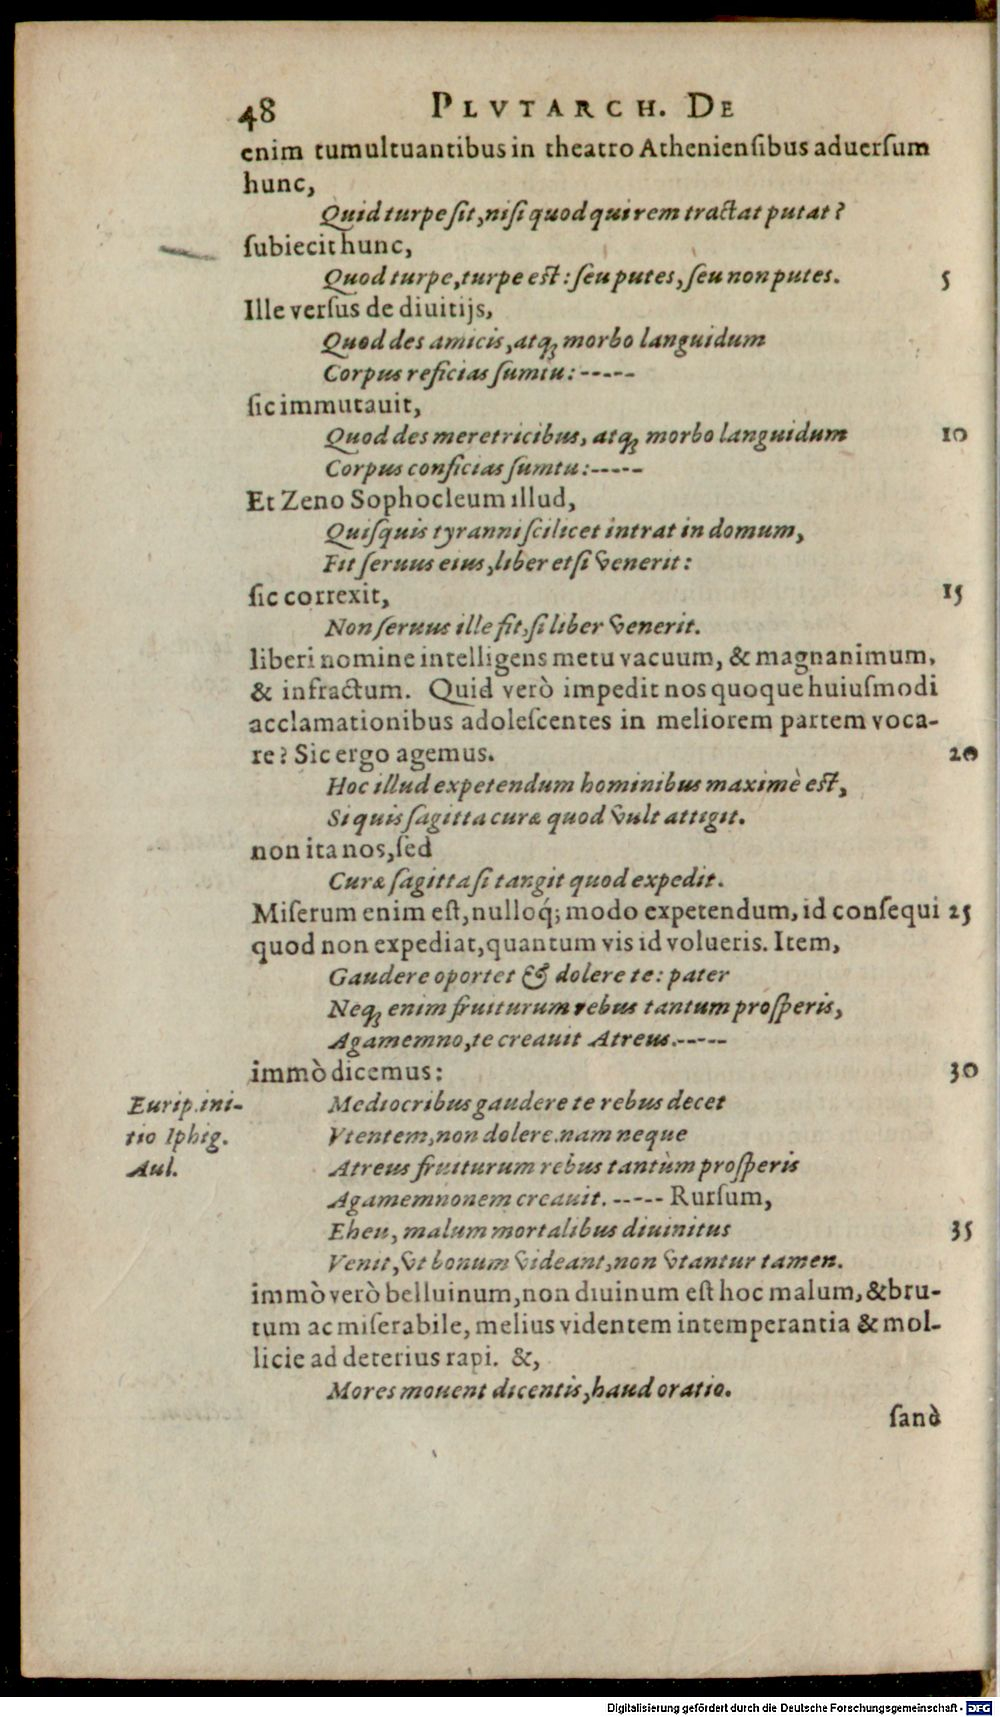 48 PLVTARCH. DE
enim tumultuantibus in theatro Atheniensibus aduersum
hunc,
Quid turpe sit, nisi quod qui rem tractat putat?
subiecit hunc,
Quod turpe, turpe est: seu putes, seu non putes. 5
Ille versus de diuitijs,
Quod des amicis, atq; morbo languidum
Corpus reficias sumtu: -----
sic immutauit,
Quod des meretricibus, atq; morbo languidum 10
Corpus conficias sumtu: -----
Et Zeno Sophocleum illud,
Quisquis tyranni scilicet intrat in domum,
Fit seruus eius, liber etsi venerit:
sic correxit, 15
Non seruus ille fit, si liber venerit.
liberi nomine intelligens metu vacuum, & magnanimum,
& infractum. Quid verò impedit nos quoque huiusmodi
acclamationibus adolescentes in meliorem partem voca-
re? Sic ergo agemus. 20
Hoc illud expetendum hominibus maximè est,
Si quis sagitta curæ quod vult attigit.
non ita nos, sed
Curæ sagitta si tangit quod expedit.
Miserum enim est, nulloq́; modo expetendum, id consequi 25
quod non expediat, quantum vis id volueris. Item,
Gaudere oportet & dolere te: pater
Neq; enim fruiturum rebus tantum prosperis,
Agamemno, te creauit Atreus. -----
immò dicemus: 30
Eurip. ini-
tio Iphig.
Aul.
Mediocribus gaudere te rebus decet
Vtentem, non dolere. nam neque
Atreus fruiturum rebus tantùm prosperis
Agamemnonem creauit. ----- Rursum,
Eheu, malum mortalibus diuinitus 35
Venit, vt bonum videant, non vtantur tamen.
immò verò belluinum, non diuinum est hoc malum, & bru-
tum ac miserabile, melius videntem intemperantia & mol-
licie ad deterius rapi. &,
Mores mouent dicentis, haud oratio.
sanè
Digitalisierung gefördert durch die Deutsche Forschungsgemeinschaft - DFG